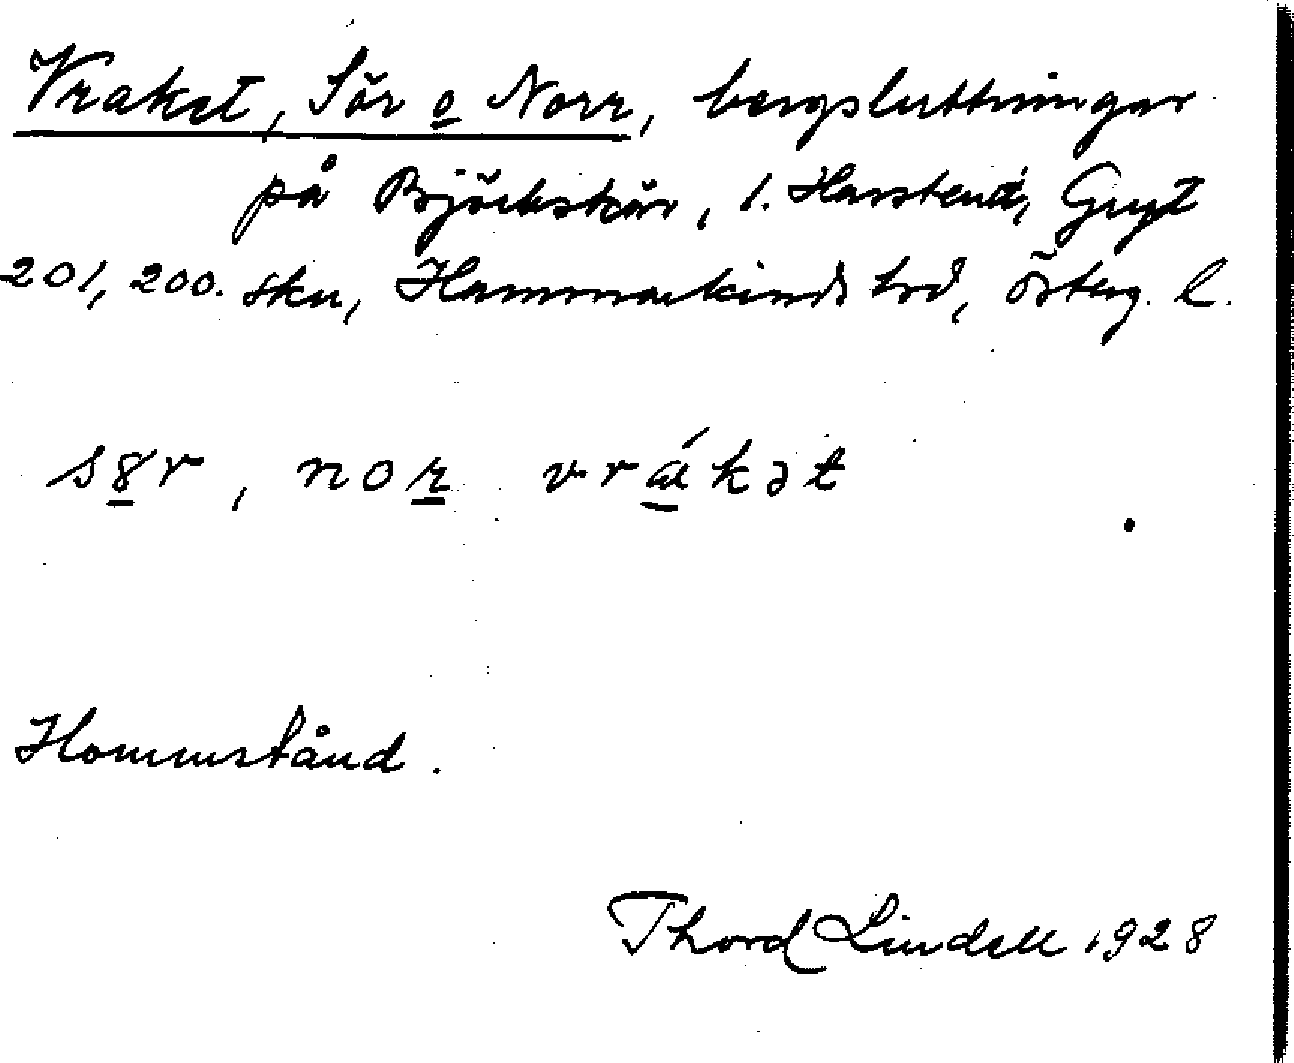 Vraket, Sör o Norr, bergsluttningar
på Björkskär, 1. Harstena, Gryt
201, 200. skn, Hammarkinds hrd, Österg. l.
s8r, nor vrákət
Hommstånd.
Thord Lindell 1928